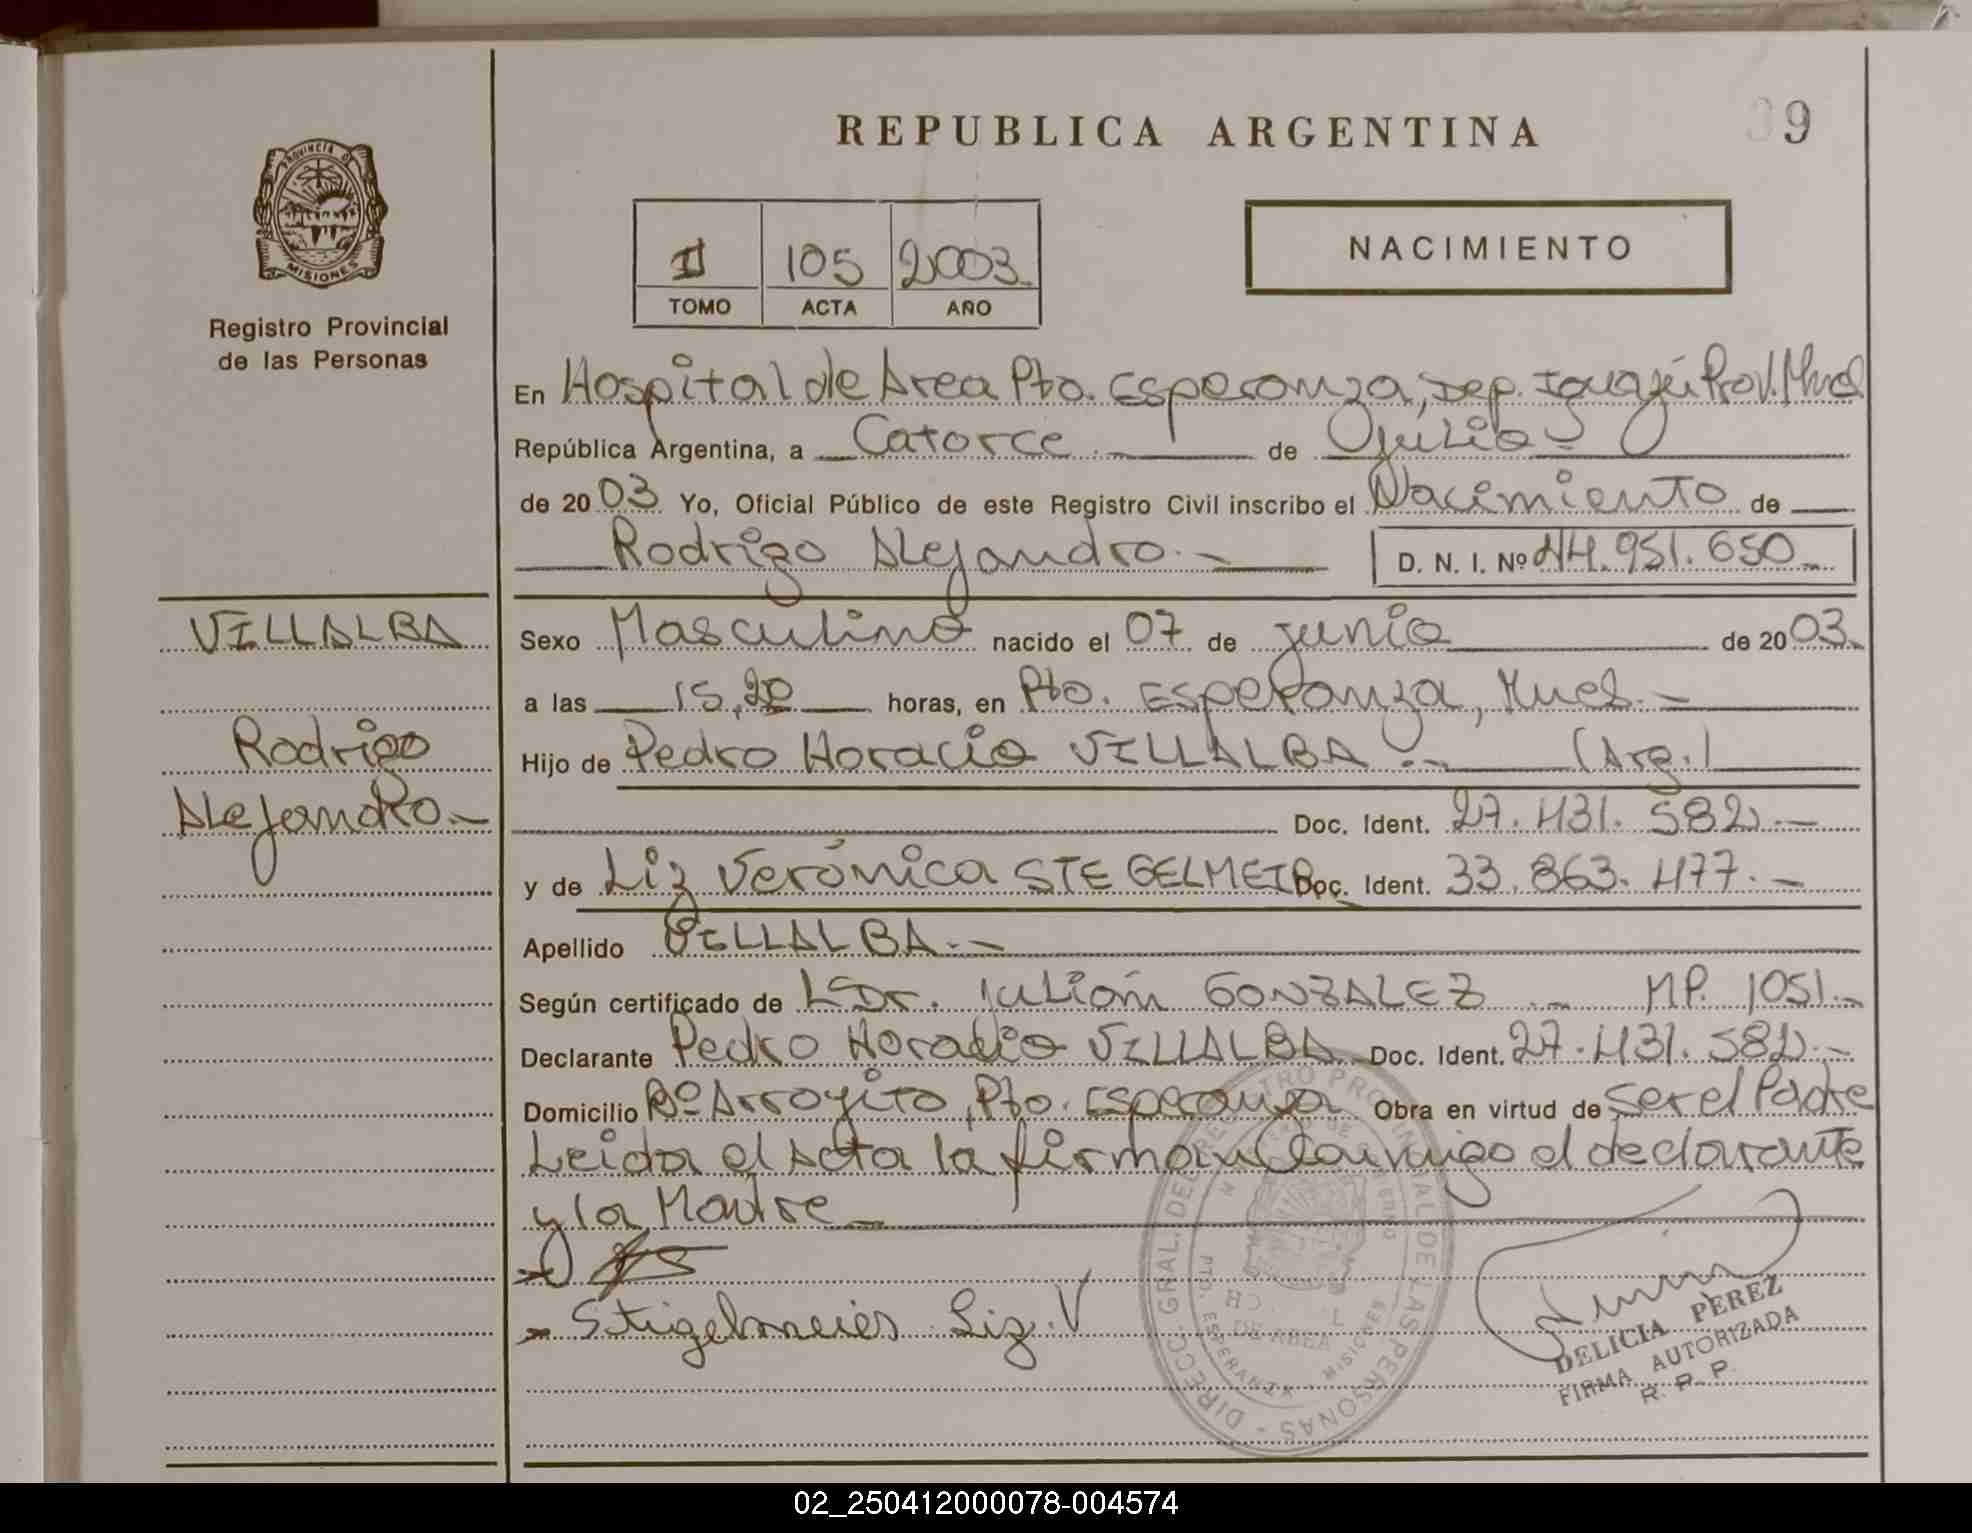 REPUBLICA ARGENTINA
39
PROVINCIA D
MISIONES
Registro Provincial
de las Personas
I 105 2003
TOMO ACTA AÑO
NACIMIENTO
En Hospital de Area Pto. Esperanza, Dep. Iguazú Prov. Mnes
República Argentina, a Catorce de Julio
de 2003 Yo, Oficial Público de este Registro Civil inscribo el Nacimiento de
Rodrigo Alejandro.- D. N. I. Nº 44.951.650
VILLALBA
Rodrigo
Alejandro.-
Sexo Masculino nacido el 07 de junio de 2003.
a las 15,20 horas, en Pto. Esperanza, Mnes.-
Hijo de Pedro Horacio VILLALBA.- (Arg.)
Doc. Ident. 27.431.582.-
y de Liz Verónica STEGELMEIR Doc. Ident. 33.863.477.-
Apellido VILLALBA.-
Según certificado de Dr. Julián GONZALEZ.- MP. 1051.-
Declarante Pedro Horacio VILLALBA Doc. Ident. 27.431.582.-
Domicilio Bº Arroyito, Pto. Esperanza Obra en virtud de ser el Padre
Leida el Acta la firman conmigo el declarante
y la Madre
Stigelmeier Liz. V
DIRECC. GRAL. DEL REGISTRO PROVINCIAL DE LAS PERSONAS
PTO. ESPERANZA - MISIONES
DE AREA
DELICIA PEREZ
FIRMA AUTORIZADA
R. P. P.
02_250412000078-004574